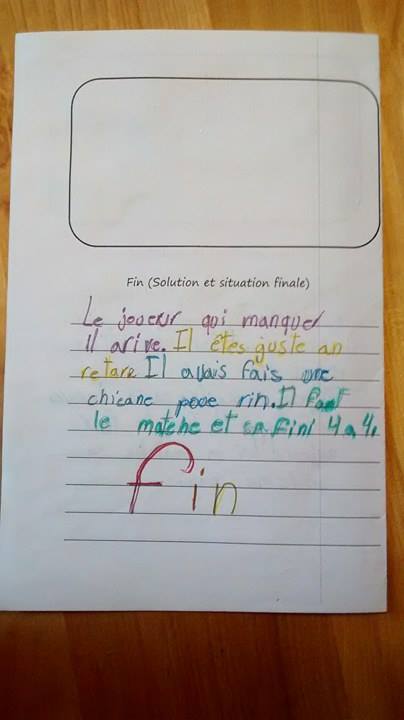 Fin (Solution et situation finale)
Le joueur qui manquer
il arive. Il êtes juste an
retare Il avais fais une
chicane pooe rin. Il font
le matche et sa fini 4 a 4.
fin